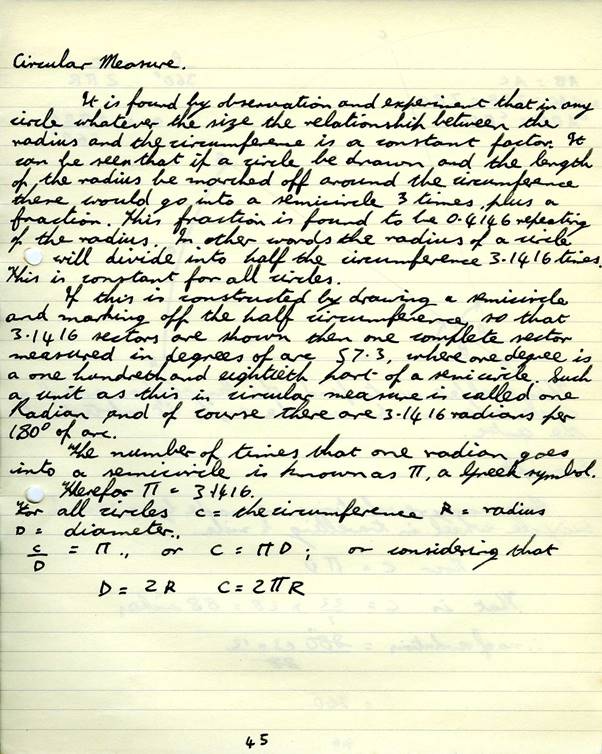 Circular Measure.
It is found by observation and experiment that in any
circle whatever the size the relationship between the
radius and the circumference is a constant factor. It
can be seen that if a circle be drawn and the length
of the radius be marched off around the circumference
there would go into a semicircle 3 times plus a
fraction. This fraction is found to be 0.4146 repeating
of the radius. In other words the radius of a circle
will divide into half the circumference 3.1416 times.
This is constant for all circles.
If this is constructed by drawing a semicircle
and marking off the half circumference so that
3.1416 sectors are shown then one complete sector
measured in degrees of arc 57.3, where one degree is
a one hundreth and eightieth part of a semicircle. Such
a unit as this in circular measure is called one
Radian and of course there are 3.1416 radians per
180° of arc.
The number of times that one radian goes
into a semicircle is known as π, a Greek symbol.
Therefor π = 3.1416.
For all circles C = the circumference R = radius
D = diameter.
C/D = π., or C = πD; or considering that
D = 2R C = 2πR
45